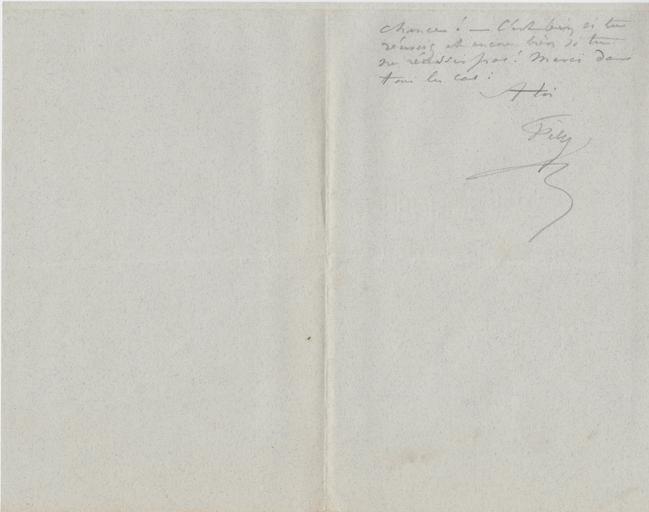 chances ! — C'est bien si tu
réussis et encore bien si tu
ne réussis pas ! Merci dans
tous les cas !
A toi